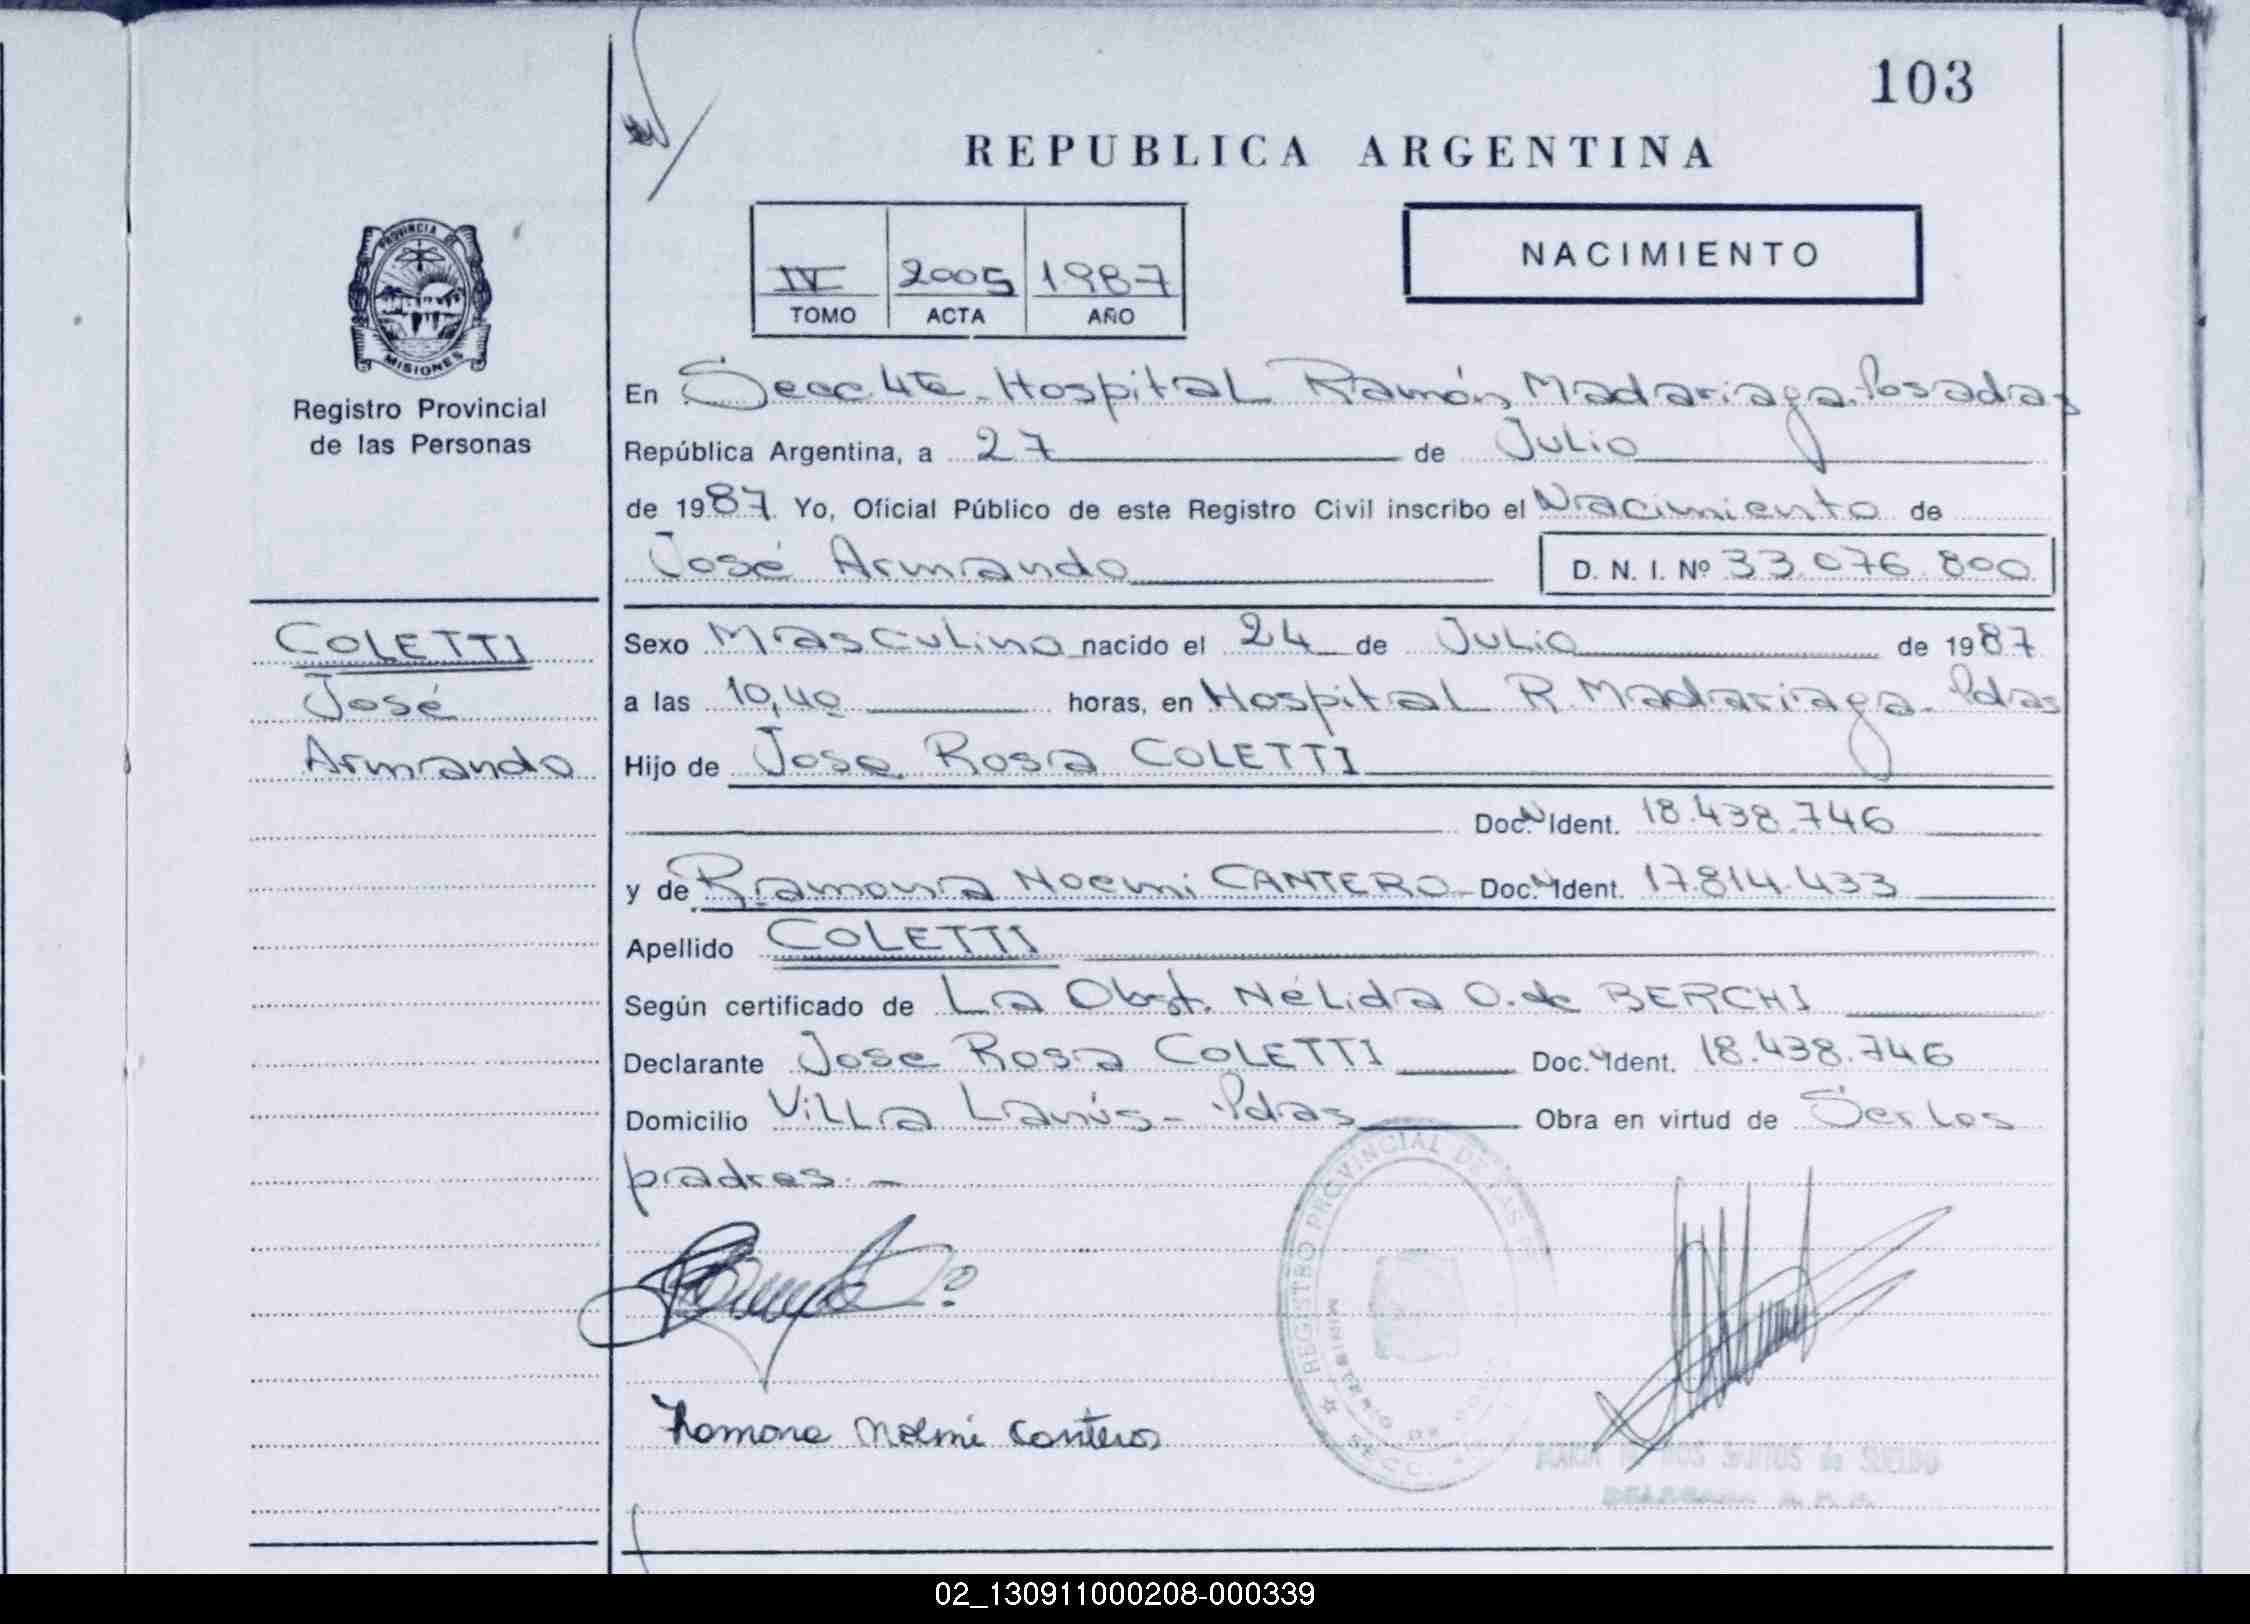 103
REPUBLICA ARGENTINA
PROVINCIA DE
MISIONES
Registro Provincial
de las Personas
IV 2005 1987
TOMO ACTA AÑO
NACIMIENTO
En Secc 4ta - Hospital Ramón Madariaga. Posadas
República Argentina, a 27 de Julio
de 1987. Yo, Oficial Público de este Registro Civil inscribo el Nacimiento de
José Armando D. N. I. Nº 33.076.800
COLETTI
José
Armando
Sexo Masculino nacido el 24 de Julio de 1987
a las 10,40 horas, en Hospital R. Madariaga - Pdas
Hijo de Jose Rosa COLETTI
Doc. N Ident. 18.438.746
y de Ramona Noemi CANTERO - Doc. N Ident. 17.814.433
Apellido COLETTI
Según certificado de La Obst. Nélida O. de BERCHI
Declarante Jose Rosa COLETTI Doc. N Ident. 18.438.746
Domicilio Villa Lanús - Pdas Obra en virtud de Ser los
padres. -
REGISTRO PROVINCIAL DE LAS
MINISTERIO DE
SECC.
Ramona Noemi Cantero
DOS SANTOS de
02_130911000208-000339